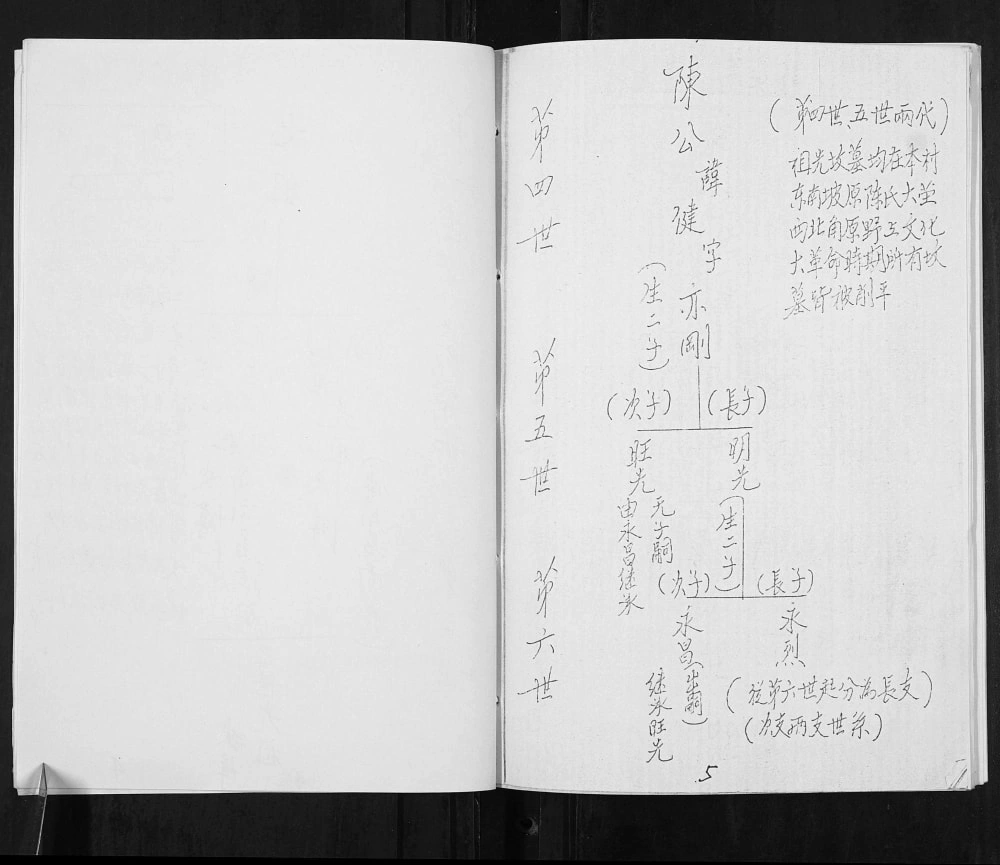 (第四世、五世兩代)
祖先坟墓均在本村
东南坡原陈氏大茔
西北角原野上文化
大革命時期所有坟
墓皆被削平
陳公諱健字亦剛
(生二子)
第四世
(長子)
(次子)
明光
(生二子)
旺光
无子嗣
由永昌继承
第五世
(長子)
(次子)
永烈
永昌(出嗣)
继承旺光
第六世
(從第六世起分為長支)
(次支两支世系)
5